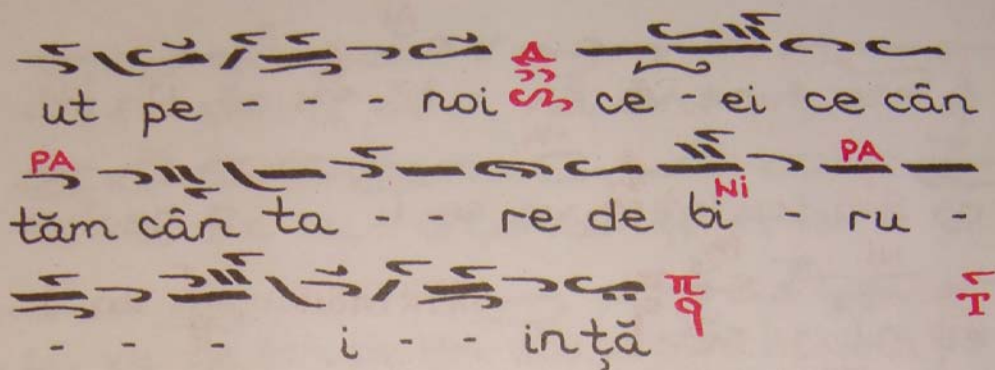 ut pe - - - noi ce - ei ce cân
PA PA
tăm cân ta - - re de bi - ru -
Ni
- - - i - - ință
π q